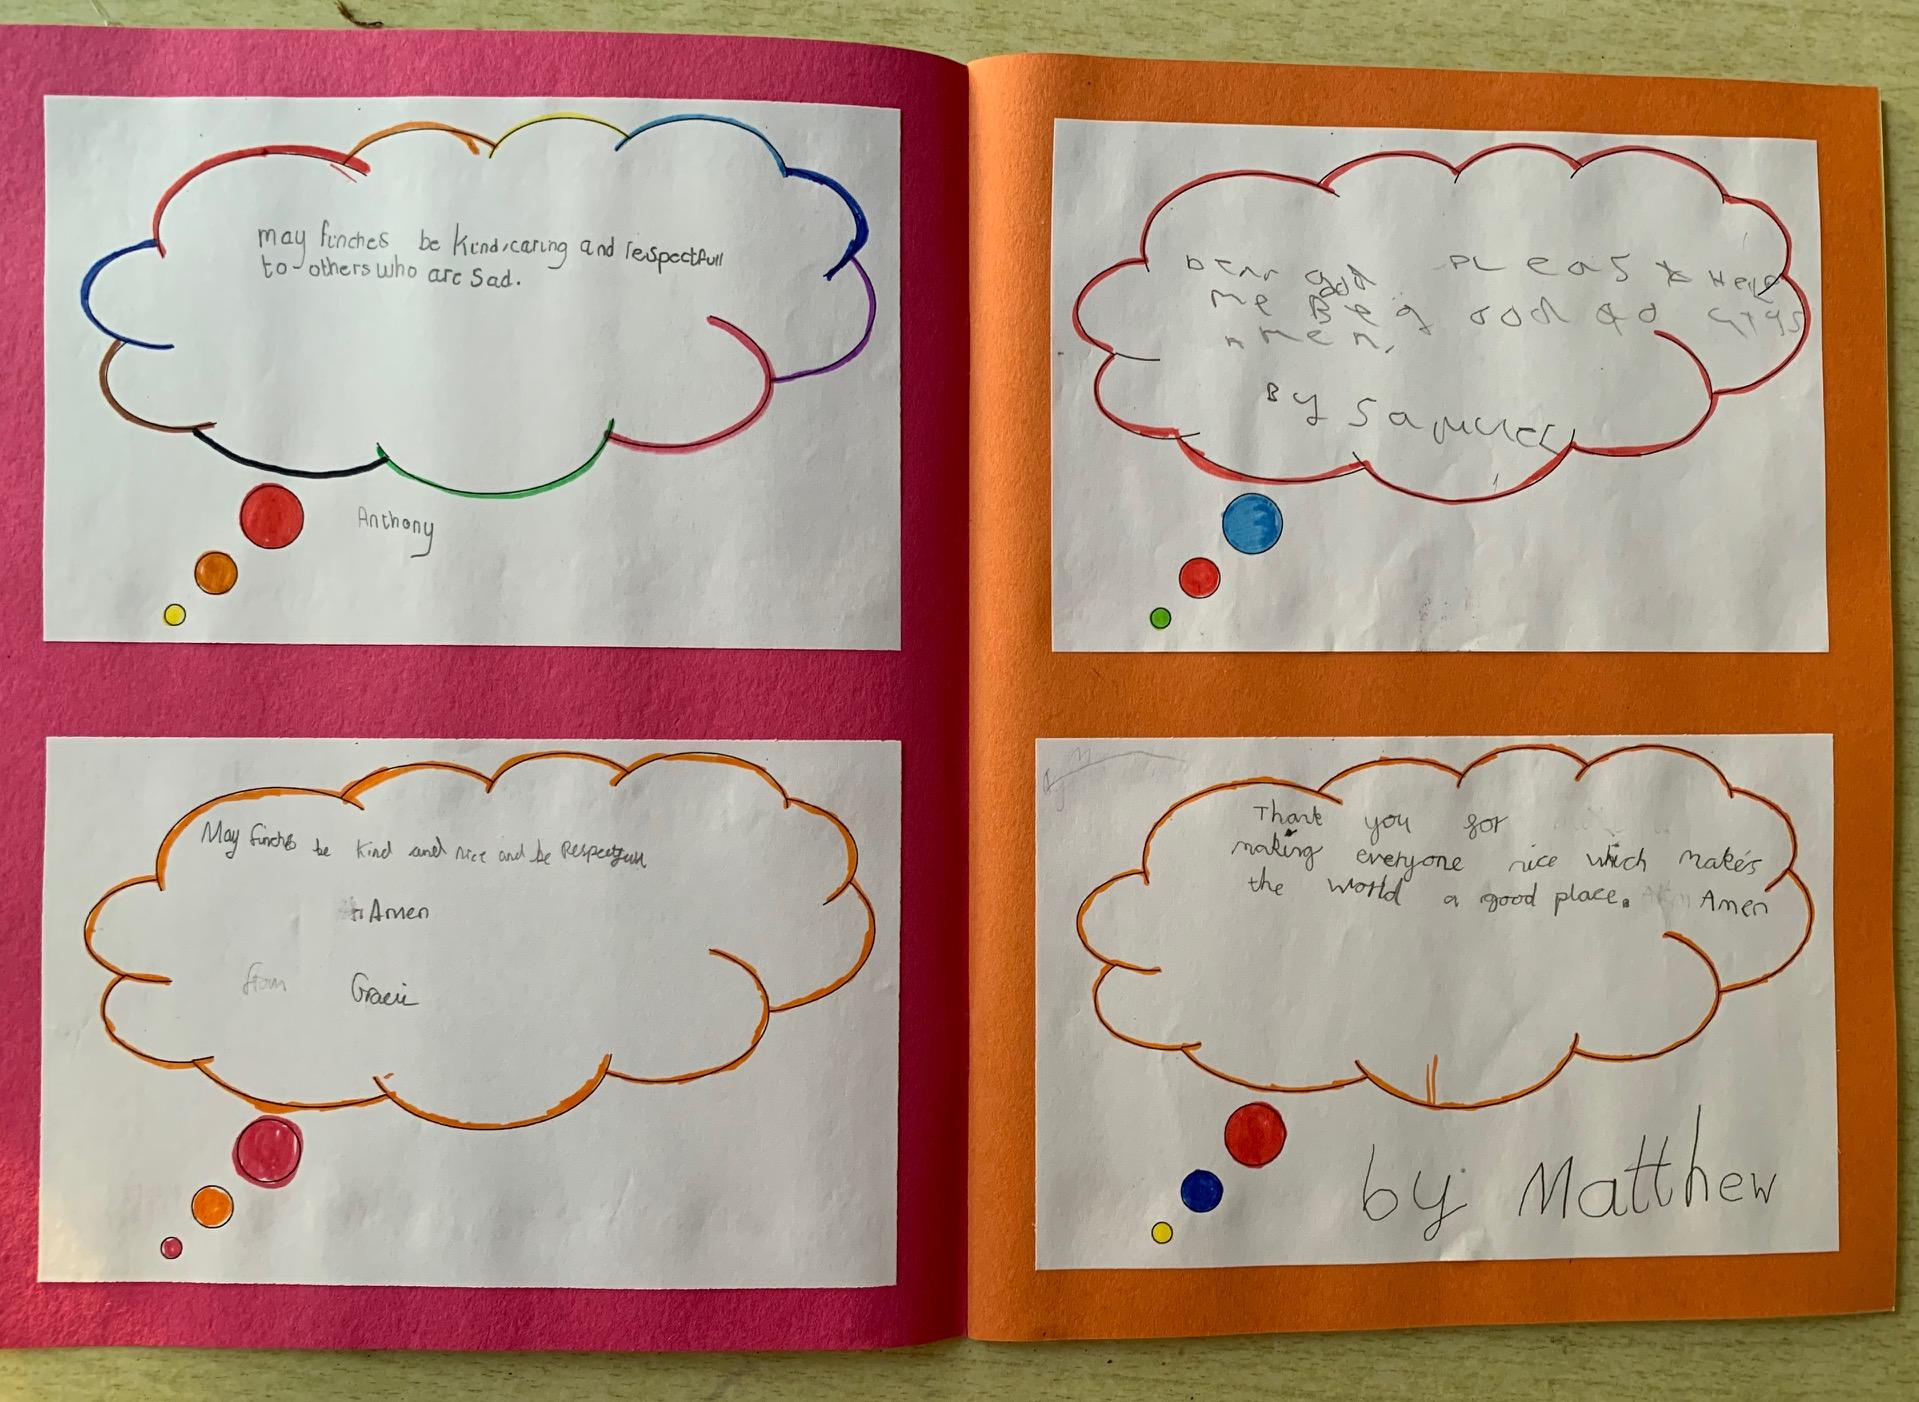 may finches be kind, caring and respectfull
to others who are sad.
Anthony
May finches be kind and nice and be Respectfull
Amen
from Gracie
Dear god Please Help
me Be good
Amen.
By Samuel
Thank you for
making everyone nice which makes
the world a good place. Amen
by Matthew